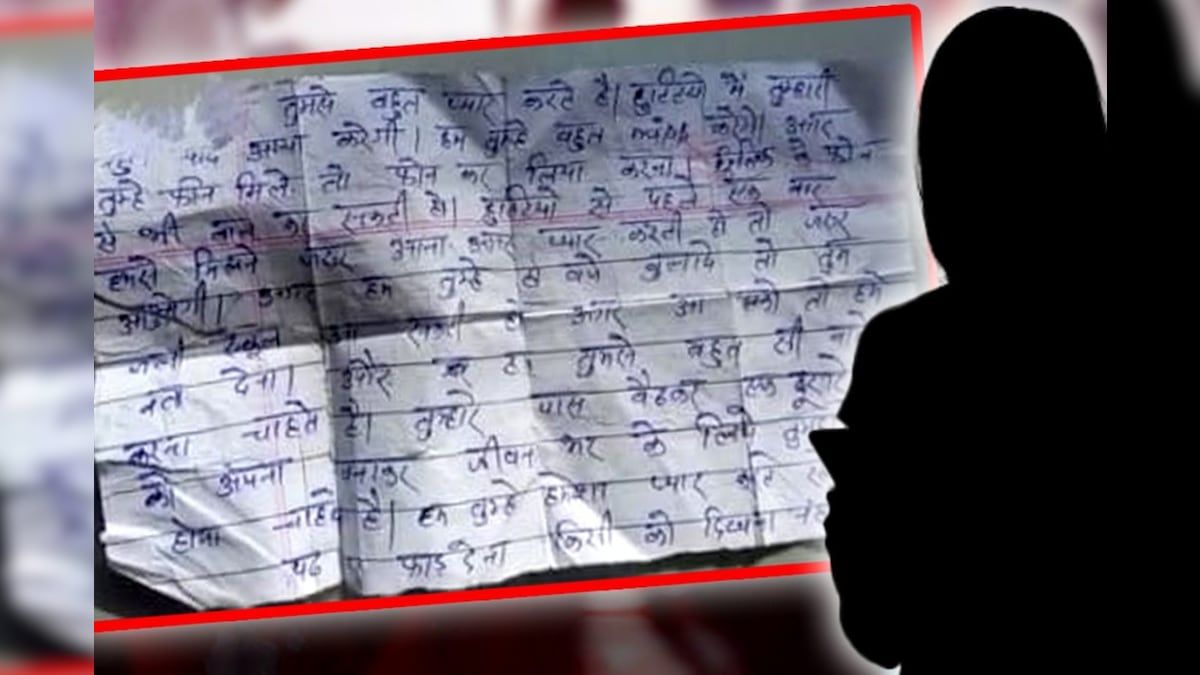 तुमसे बहुत प्यार करते है। छुट्टियो मैं तुम्हारी
याद आया करेगी। हम तुम्हे बहुत करेगे। अगर
तुम्हे फोन मिले तो फोन कर लिया करना। के फोन
से भी बात कर सकती हो। छुट्टियो से पहले एक बार
हमसे मिलने जरूर आना अगर प्यार करती हो तो जरूर
आओगी। अगर हम तुम्हे 8 बजे बुलाये तो तुम
जल्दी स्कूल आ सकती हो अगर आ सको तो हमे
बता देना। और हा तुमसे बहुत सी बा
करना चाहते है। तुम्हारे पास बैठकर एक दूसरे
को अपना बनाकर जीवन भर के लिये तुम
होना चाहते है। हम तुम्हे हमेशा प्यार करते
पढ फाड़ देना किसी को